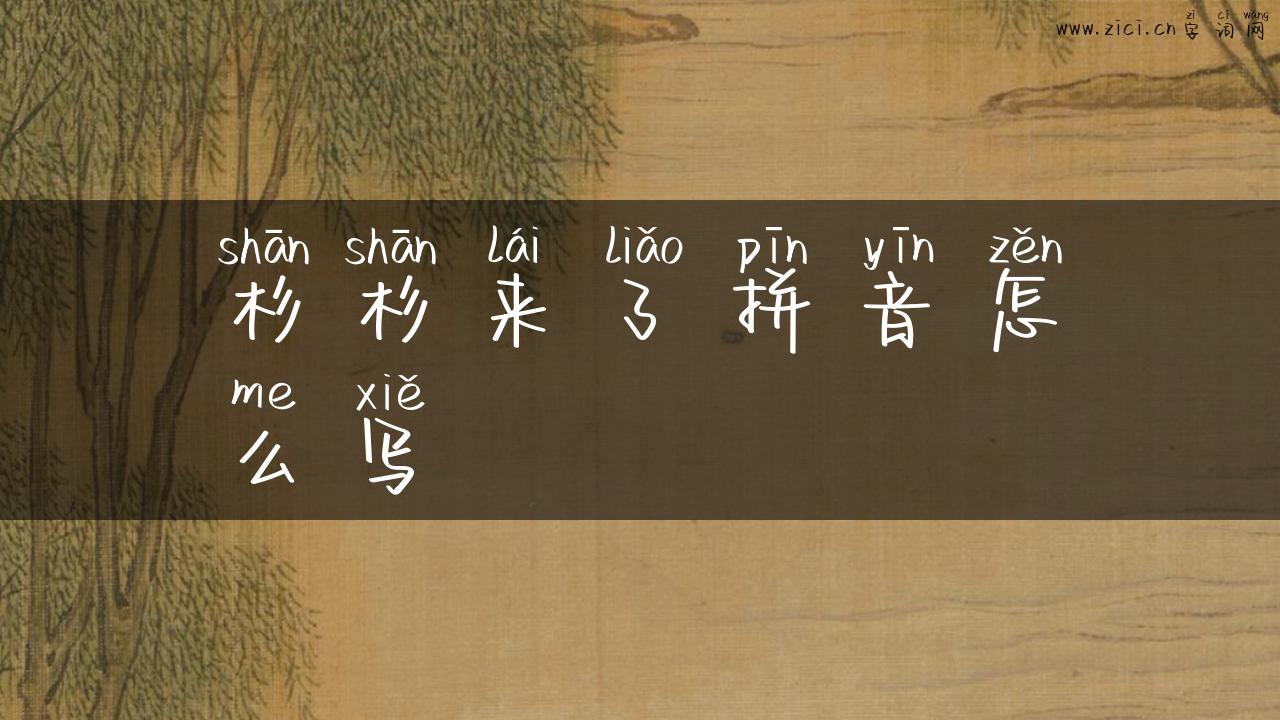 zì cí wǎng
www.zici.cn 字 词 网
shān shān lái liǎo pīn yīn zěn
杉 杉 来 了 拼 音 怎
me xiě
么 写